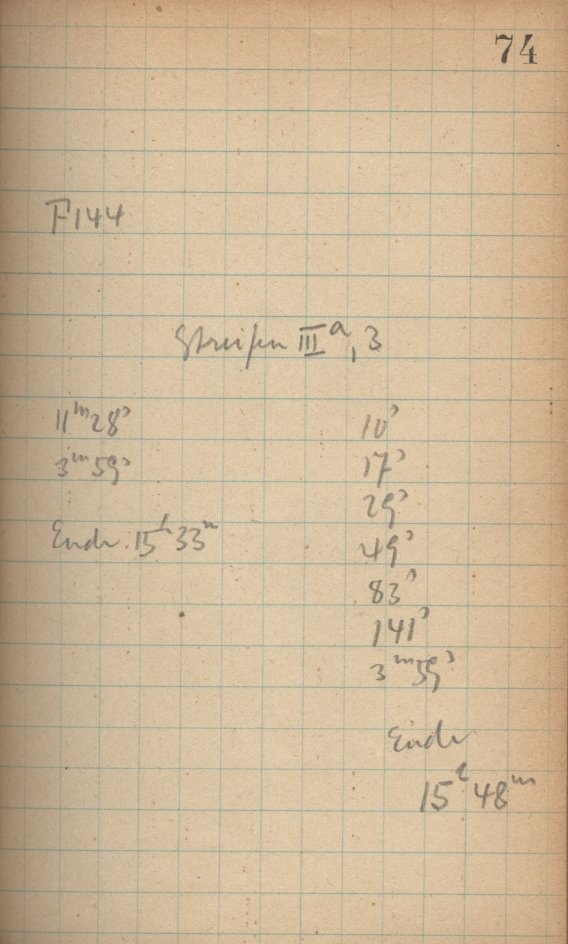 74
F144
Streifen III^a, 3
11^m 28^s
3^m 59^s
Ende 15^h 33^m
10^s
17^s
29^s
49^s
83^s
141^s
3^m 59^s
Ende
15^h 48^m